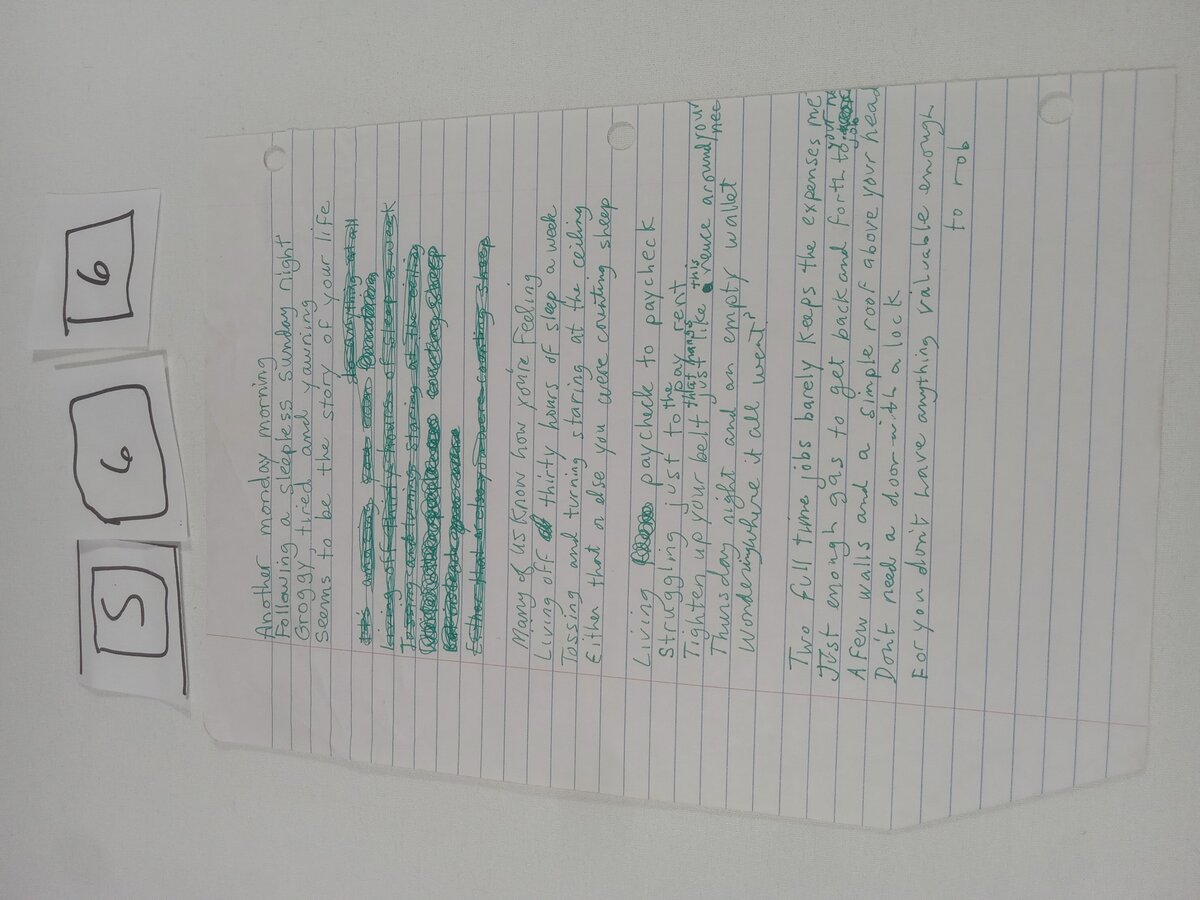 5 6 6
Another monday morning
Following a sleepless sunday night
Groggy, tired and yawning
Seems to be the story of your life
Living off thirty hours of sleep a week
Tossing and turning staring at the ceiling
Either that or else you were counting sheep
Many of us know how you're feeling
Living off thirty hours of sleep a week
Tossing and turning staring at the ceiling
Either that or else you were counting sheep
Living paycheck to paycheck
Struggling just to pay the rent
Tighten up your belt that hangs just like this neuce around your nec
Thursday night and an empty wallet
Wondering where it all went?
Two full time jobs barely keeps the expenses me
Just enough gas to get back and forth to your job
A few walls and a simple roof above your head
Don't need a door with a lock
For you don't have anything valuable enough
to rob